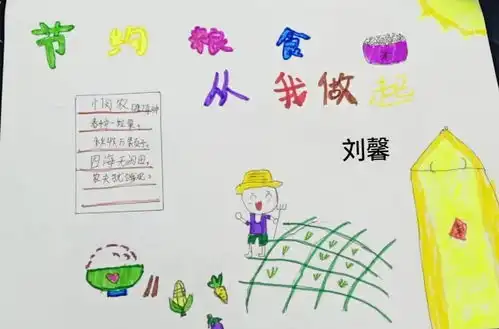 节约粮食
从我做起
刘馨
春种一粒粟。
秋收万颗子。
四海无闲田。
农夫犹饿死。